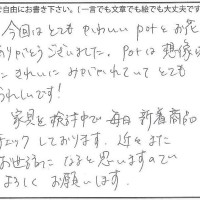 で自由にお書き下さい。(一言でも文章でも絵でも大丈夫です
今回はとてもかわいいpotとお花
ありがとうございました。Potは想像
にきれいにみがかれていてとても
うれしいです!
家具を検討中で毎日新着商品
チェックしております。近々また
お世話になると思いますので
よろしくお願いします。